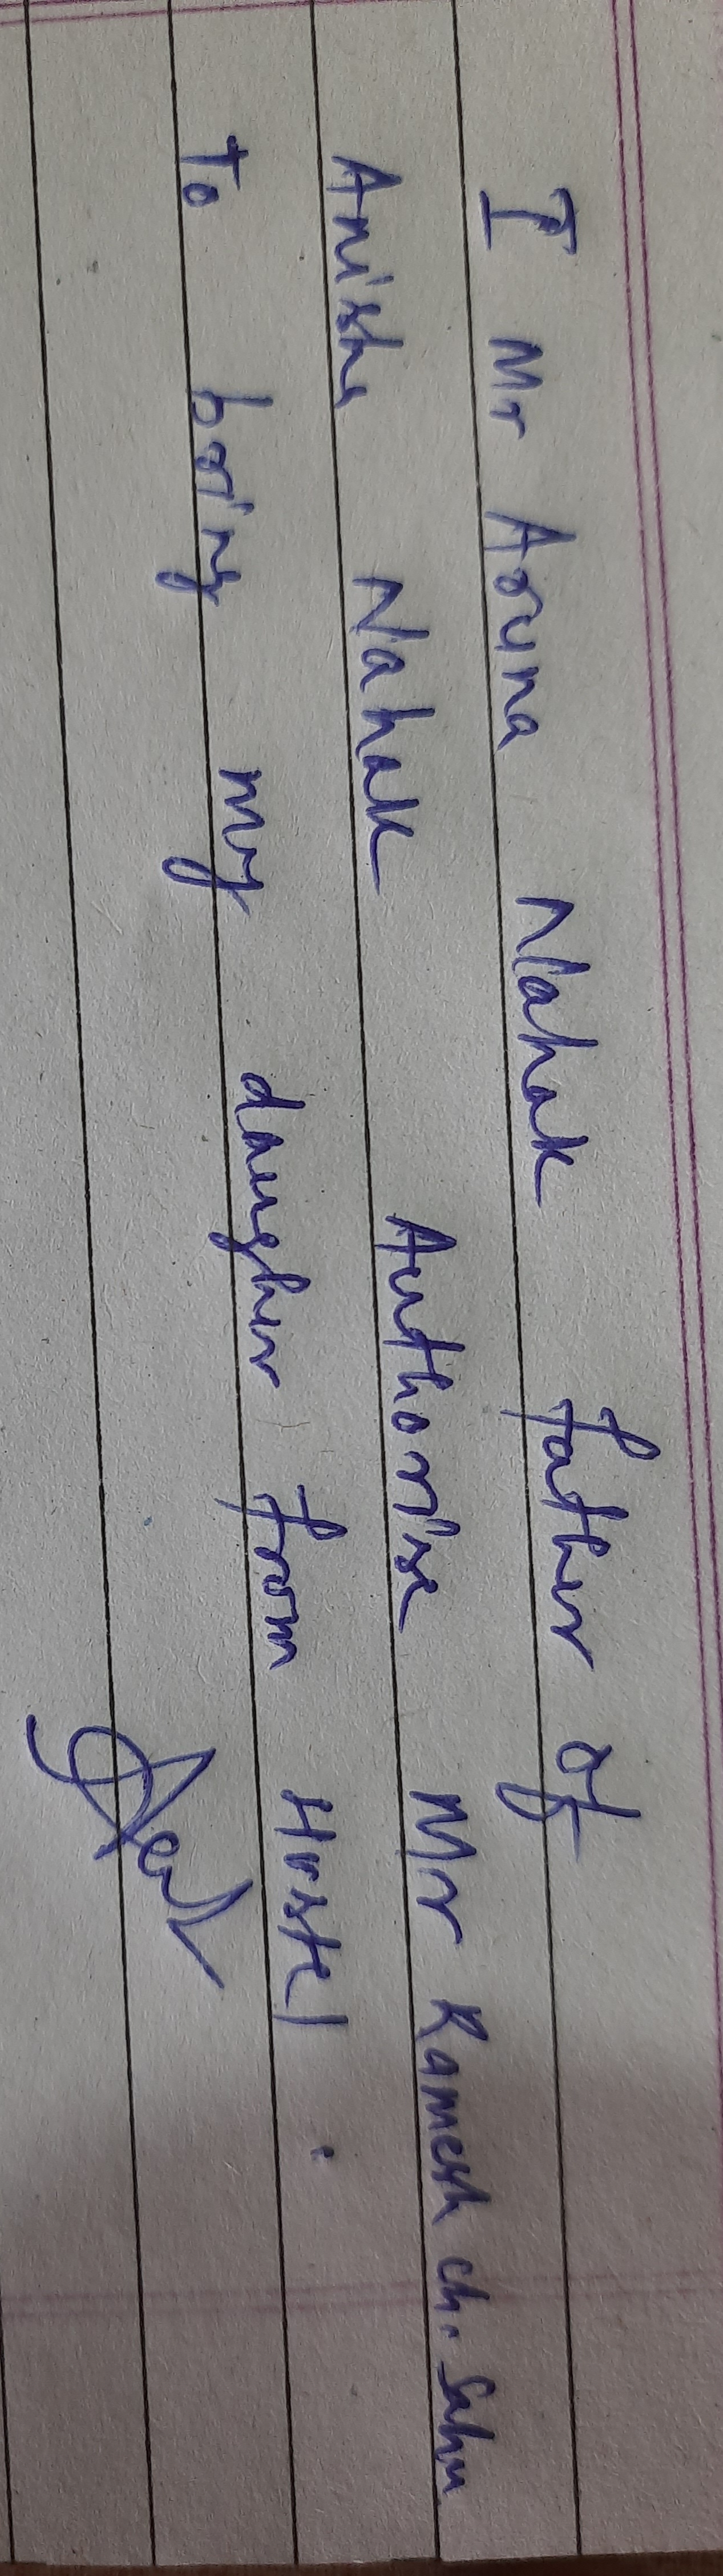 I Mr Aruna Nahak father of
Anisha Nahak Authorise Mr Ramesh ch. Sahu
To bring my daugher from Hostel.